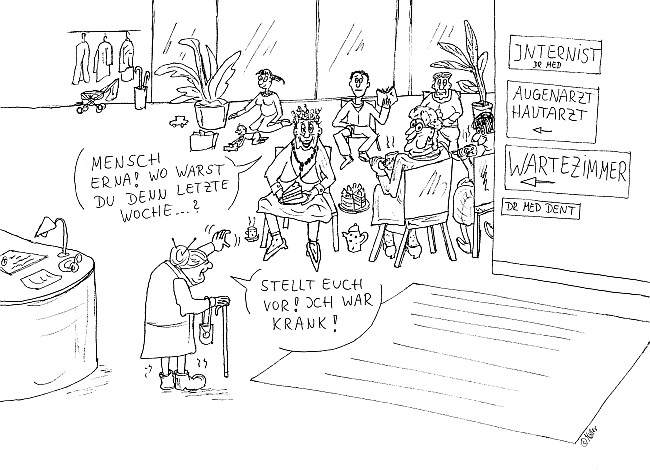 INTERNIST
DR MED
AUGENARZT
HAUTARZT
WARTEZIMMER
DR MED DENT
MENSCH
ERNA! WO WARST
DU DENN LETZTE
WOCHE...?
STELLT EUCH
VOR! ICH WAR
KRANK!